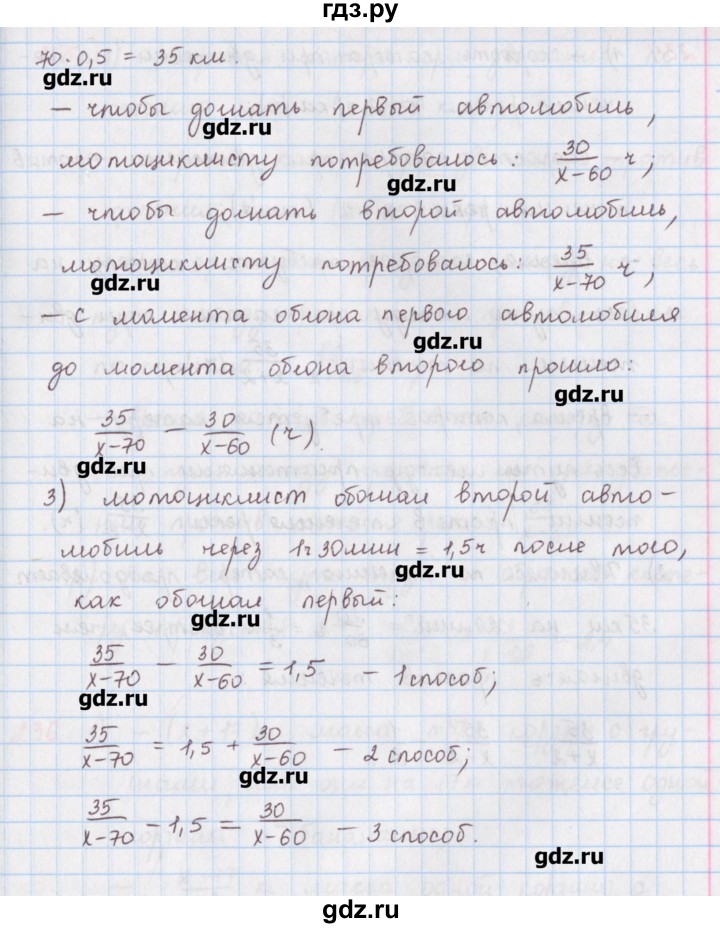 гдз.ру
70 · 0,5 = 35 км.
gdz.ru
– чтобы догнать первый автомобиль,
gdz.ru
мотоциклисту потребовалось: 30/(x–60) ч,
gdz.ru
– чтобы догнать второй автомобиль,
мотоциклисту потребовалось: 35/(x–70) ч,
gdz.ru
– с момента обгона первого автомобиля
gdz.ru
до момента обгона второго прошло:
gdz.ru
35/(x–70) – 30/(x–60) (ч).
gdz.ru
3) мотоциклист обогнал второй авто-
мобиль через 1ч 30мин = 1,5ч после того,
gdz.ru
как обогнал первый:
gdz.ru
35/(x–70) – 30/(x–60) = 1,5 – 1 способ;
gdz.ru
35/(x–70) = 1,5 + 30/(x–60) – 2 способ;
gdz.ru
35/(x–70) – 1,5 = 30/(x–60) – 3 способ.
gdz.ru
gdz.ru